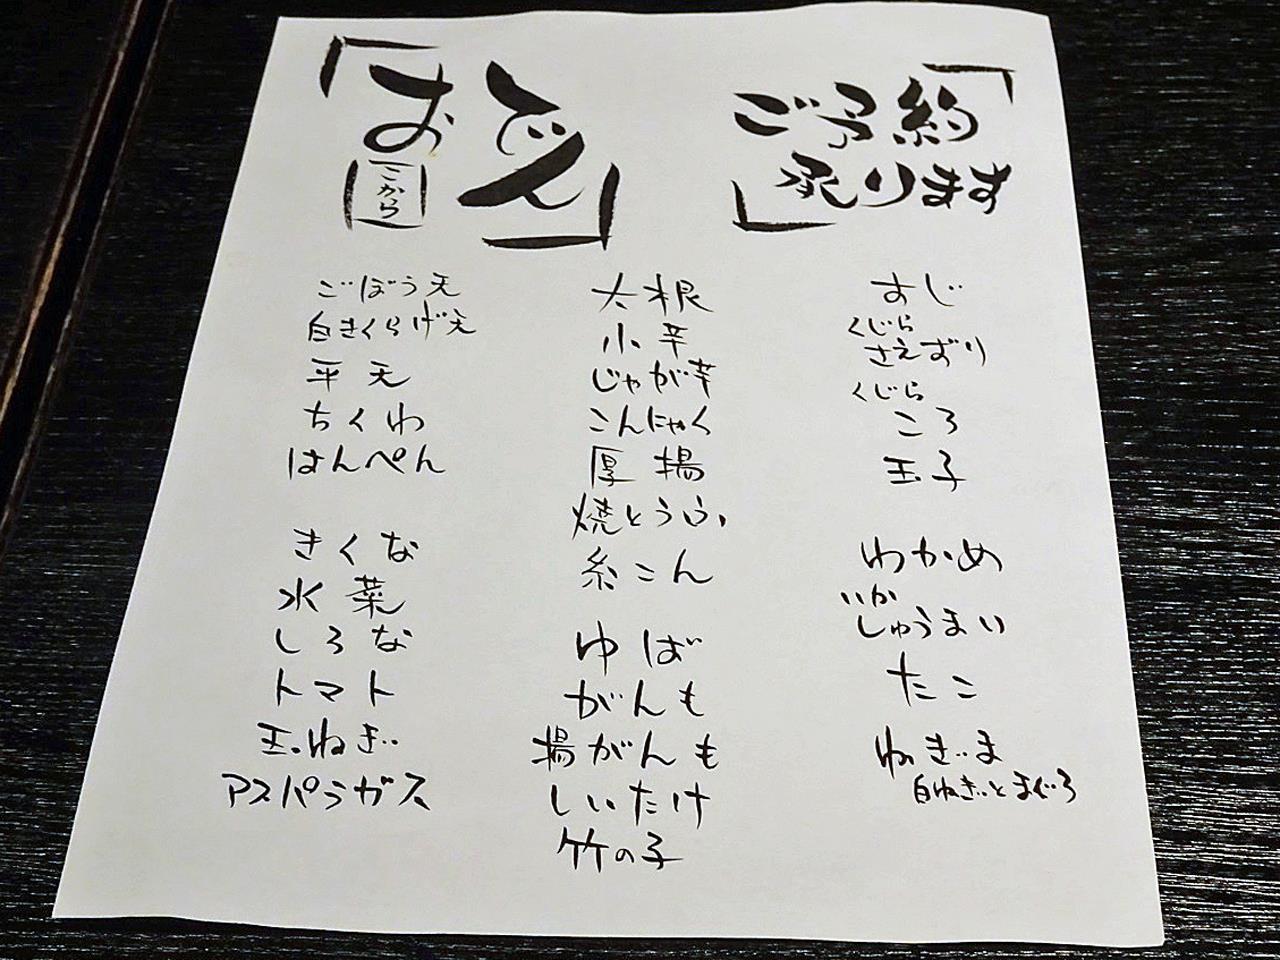 「おでん」
「こから」
「ご予約
承ります」
ごぼう天
白きくらげ天
平天
ちくわ
はんぺん
きくな
水菜
しろな
トマト
玉ねぎ
アスパラガス
大根
小芋
じゃが芋
こんにゃく
厚揚
焼とうふ
糸こん
ゆば
がんも
揚がんも
しいたけ
竹の子
すじ
くじら
さえずり
くじら
ころ
玉子
わかめ
いか
しゅうまい
たこ
ねぎま
白ねぎとまぐろ